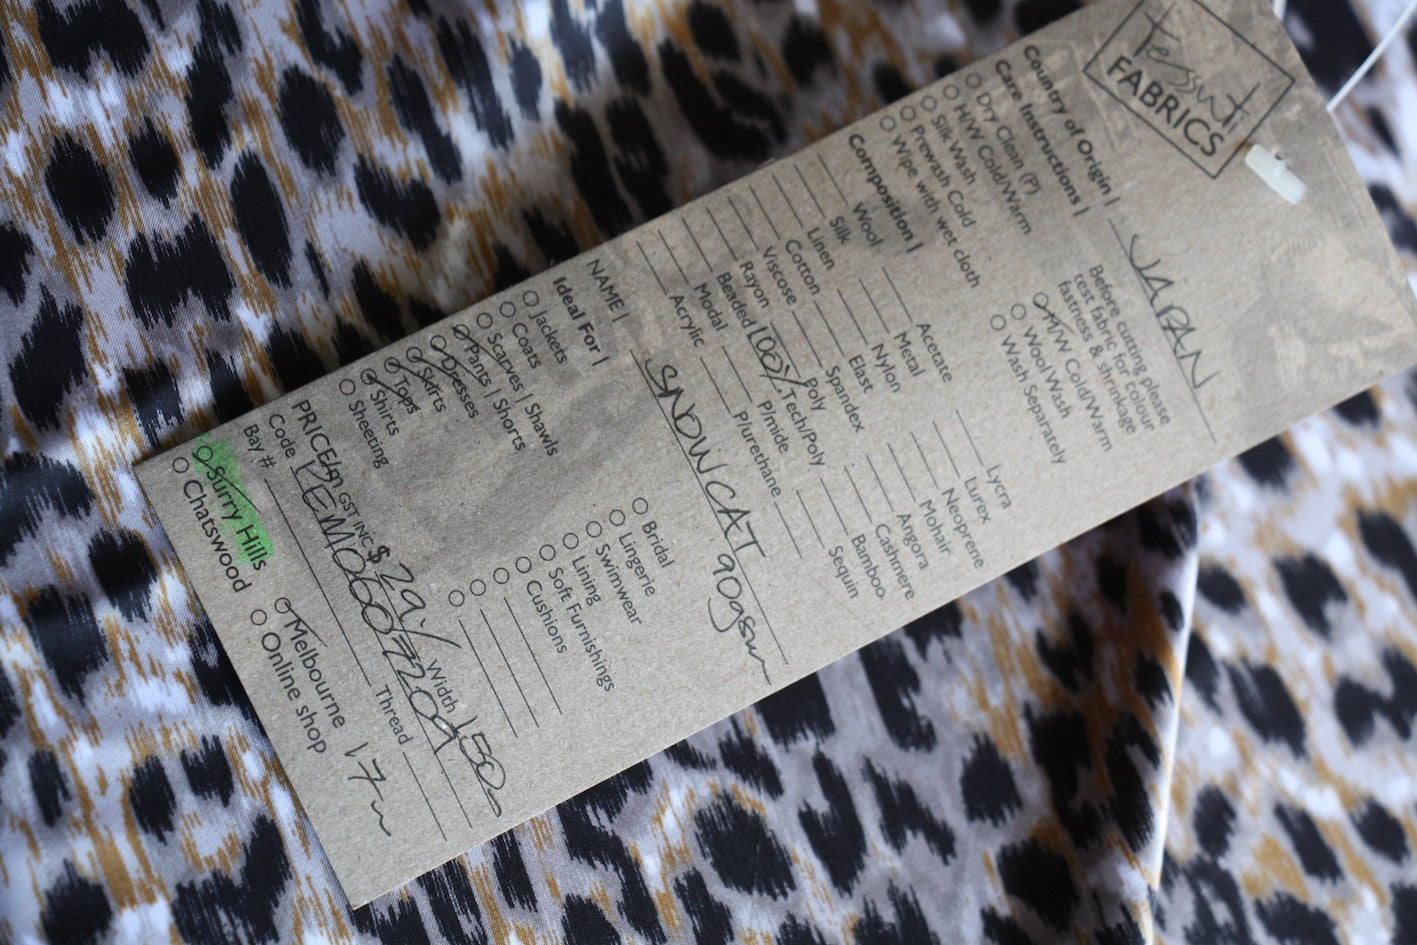 Tessuti
FABRICS
Country of Origin | JAPAN
Care Instructions |
Dry Clean (P)
H/W Cold/Warm
Silk Wash
Prewash Cold
Wipe with wet cloth
Before cutting please
test fabric for colour
fastness & shrinkage
M/W Cold/Warm
Wool Wash
Wash Separately
Composition |
Wool
Silk
Linen
Cotton
Viscose
Rayon
Beaded
Modal
Acrylic
Acetate
Metal
Nylon
Elast
Spandex
Poly
100% Tech/Poly
P/mide
P/urethane
Lycra
Lurex
Neoprene
Mohair
Angora
Cashmere
Bamboo
Sequin
NAME | SNOW CAT 90gsm
Ideal For |
Jackets
Coats
Scarves | Shawls
Pants | Shorts
Dresses
Skirts
Tops
Shirts
Sheeting
Bridal
Lingerie
Swimwear
Lining
Soft Furnishings
Cushions
PRICE/m GST INC $29/ Width 150
Code PEM06077209
Bay # Thread
Surry Hills
Chatswood
Melbourne 17m
Online shop